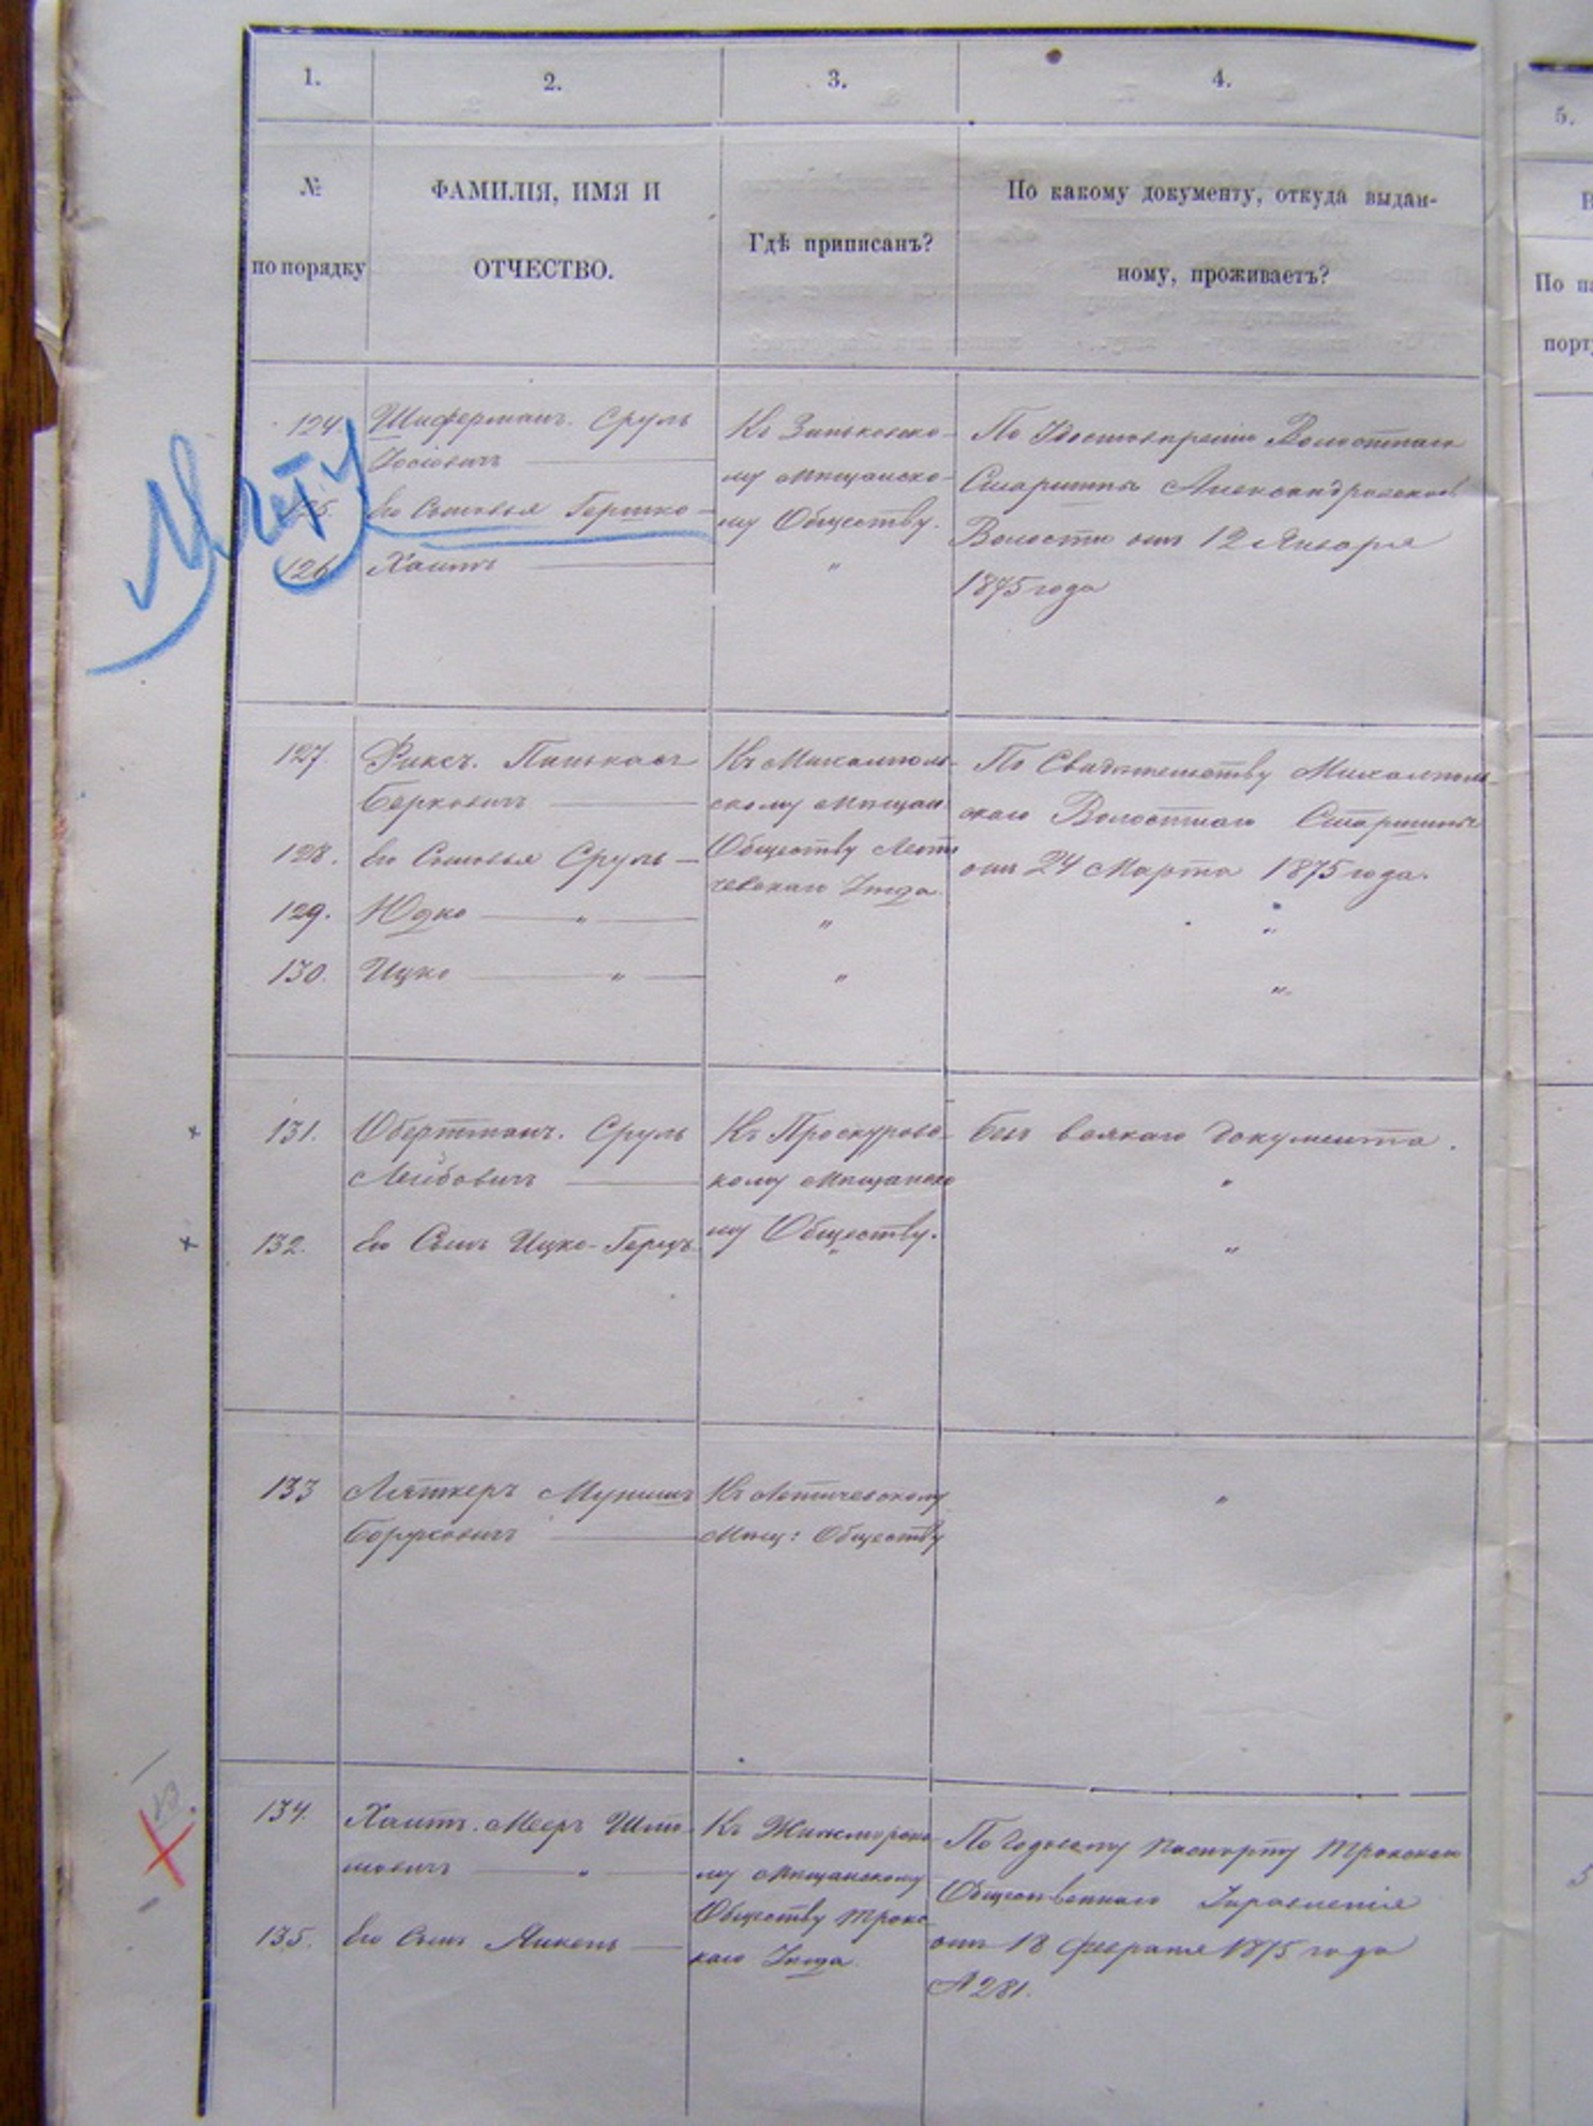 1. 2. 3. 4. 5.
№ по порядку
ФАМИЛІЯ, ИМЯ И
ОТЧЕСТВО.
Гдѣ приписанъ?
По какому документу, откуда выдан-
ному, проживаетъ?
По па
порту
124 Шиферманъ. Сруль
Іосіовичъ
125. Его Сыновья Гершко
126 Хаимъ
Къ Зиньковско-
му Мѣщанско-
му Обществу.
"
По Удостовѣренію Волостнаго
Старшины Александровской
Волости отъ 12 Января
1875 года
127. Фиксъ. Пинькасъ
Берковичъ
128. Его Сыновья Сруль
129. Юдко "
130. Ицко "
Къ Михалполь-
скому Мѣщан.
Обществу Лети
чевскаго Уѣзда.
"
"
По Свидѣтельству Михалполь-
скаго Волостнаго Старшины
отъ 24 Марта 1875 года.
"
"
131. Обертманъ. Сруль
Лейбовичъ
132. Его Сынъ Ицко-Герцъ.
Къ Проскуровс-
кому Мѣщанско
му Обществу.
"
Безъ всякаго документа.
"
"
133 Ляткеръ
Боруховичъ
Къ Летичевскому
Мѣщ: Обществу
"
134. Хаитъ. Мееръ Шлио-
мовичъ "
135. Его Сынъ Янкель
Къ Жижморско-
му Мѣщанскому
Обществу Трокс-
каго Уѣзда.
По Годовому Паспорту Трокскаго
Общественнаго Управленія
отъ 18 Февраля 1875 года
№ 281.